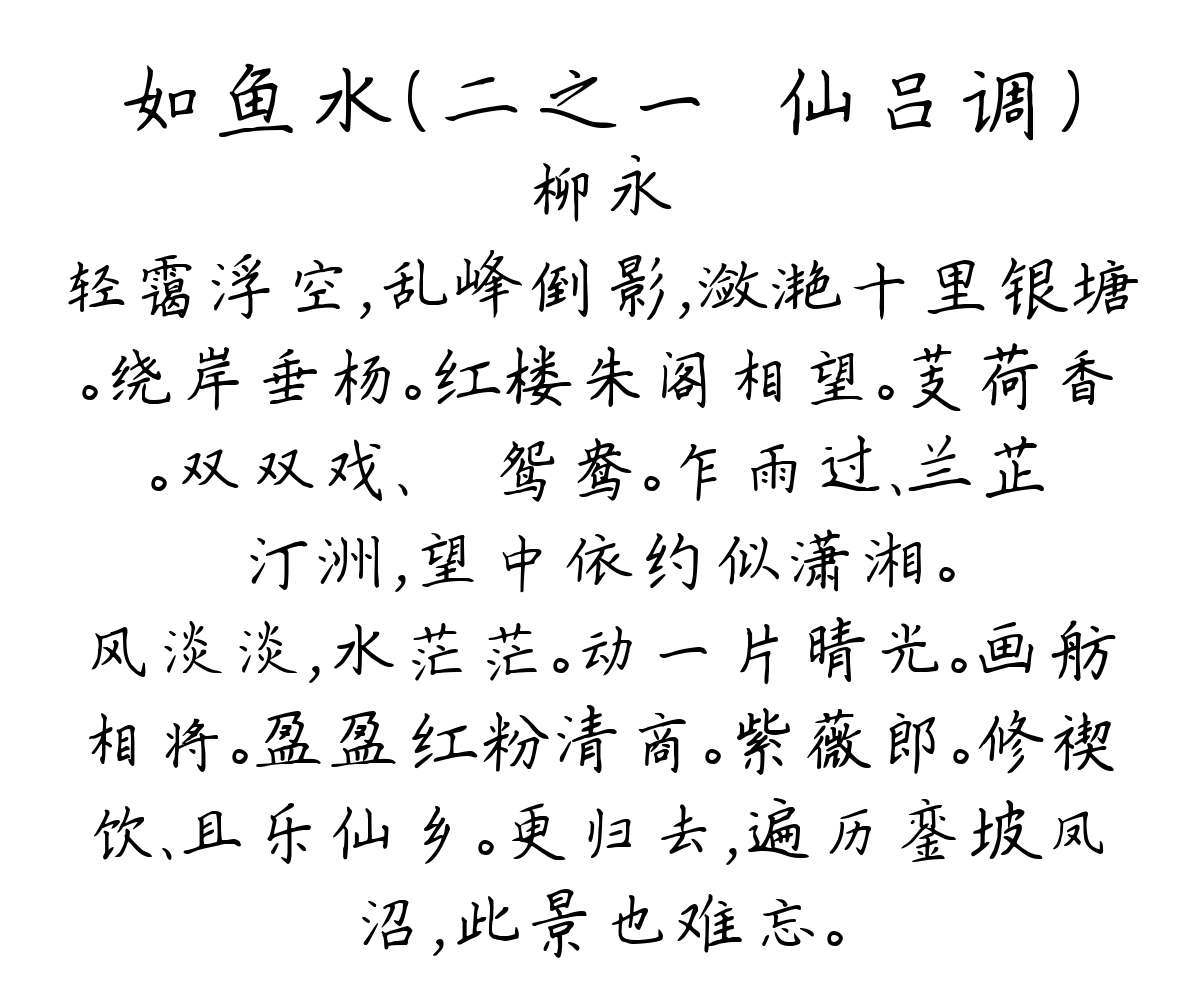 如鱼水(二之一 仙吕调)
柳永
轻霭浮空,乱峰倒影,潋滟十里银塘
。绕岸垂杨。红楼朱阁相望。芰荷香
。双双戏、 鸳鸯。乍雨过、兰芷
汀洲,望中依约似潇湘。
风淡淡,水茫茫。动一片晴光。画舫
相将。盈盈红粉清商。紫薇郎。修禊
饮、且乐仙乡。更归去,遍历銮坡凤
沼,此景也难忘。